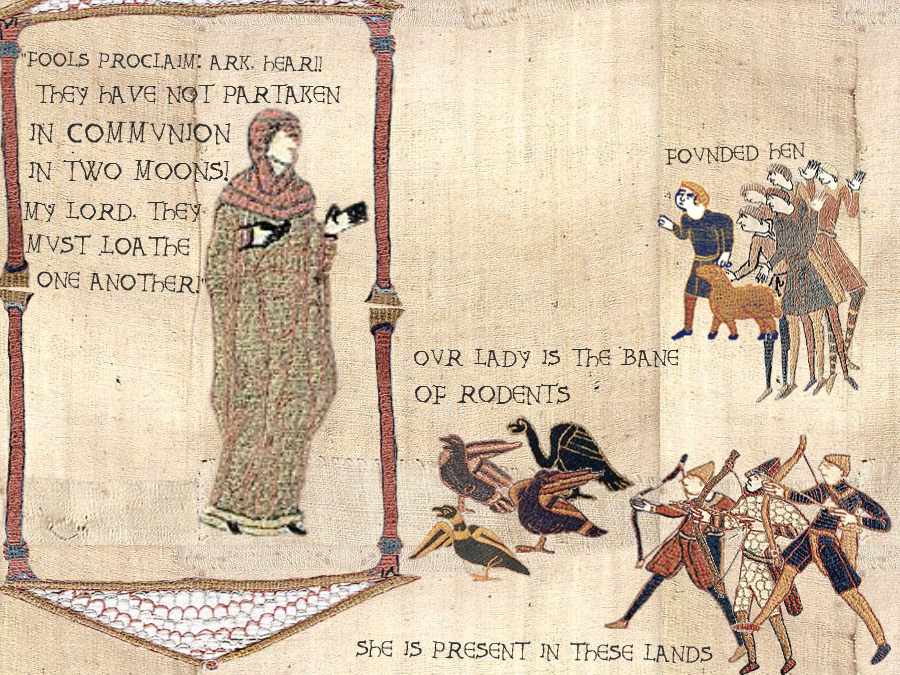 "FOOLS PROCLAIM: ARK, HEAR!!
THEY HAVE NOT PARTAKEN
IN COMMVNION
IN TWO MOONS!
MY LORD, THEY
MVST LOATHE
ONE ANOTHER!"
FOVNDED HEN
OVR LADY IS THE BANE
OF RODENTS
SHE IS PRESENT IN THESE LANDS